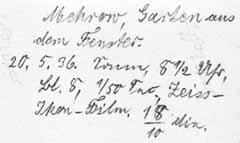 Mehrow, Garten aus
dem Fenster.
20. 5. 36. Sonne, 8 1/2 Uhr,
Bl. 8, 1/50 Zeiss-
Ikon-Film. 18/10 din.